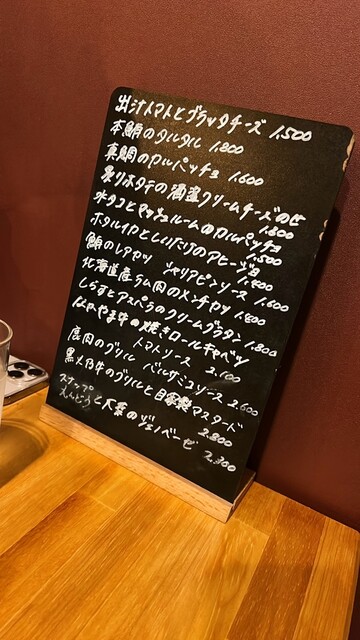 出汁トマトとブラッタチーズ 1.500
本鮪のタルタル 1.800
真鯛のカルパッチョ 1.600
炙りホタテの酒盗クリームチーズのせ 1.800
水タコとマッシュルームのカルパッチョ 1.500
ホタルイカとしいたけのアヒージョ 1.400
鮪のレアカツ シャリアピンソース 1.600
北海道産ラム肉のメンチカツ 1.800
しらすとアスパラのクリームグラタン 1.800
牛の焼きロールキャベツ
トマトソース 2.600
鹿肉のグリル バルサミコソース 2.600
黒毛和牛のグリルと自家製マスタード 2.800
スナップえんどうと大葉のジェノベーゼ 2.300